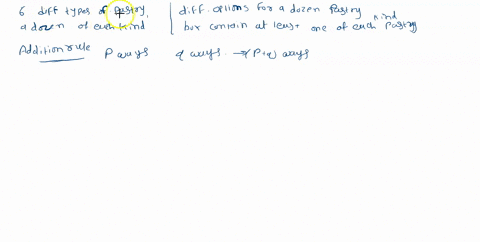 6 diff types of pastry,
a dozen of each kind
diff. options for a dozen pastry
but contain at least one of each kind pastry
Addition rule P ways q ways → (P+q) ways